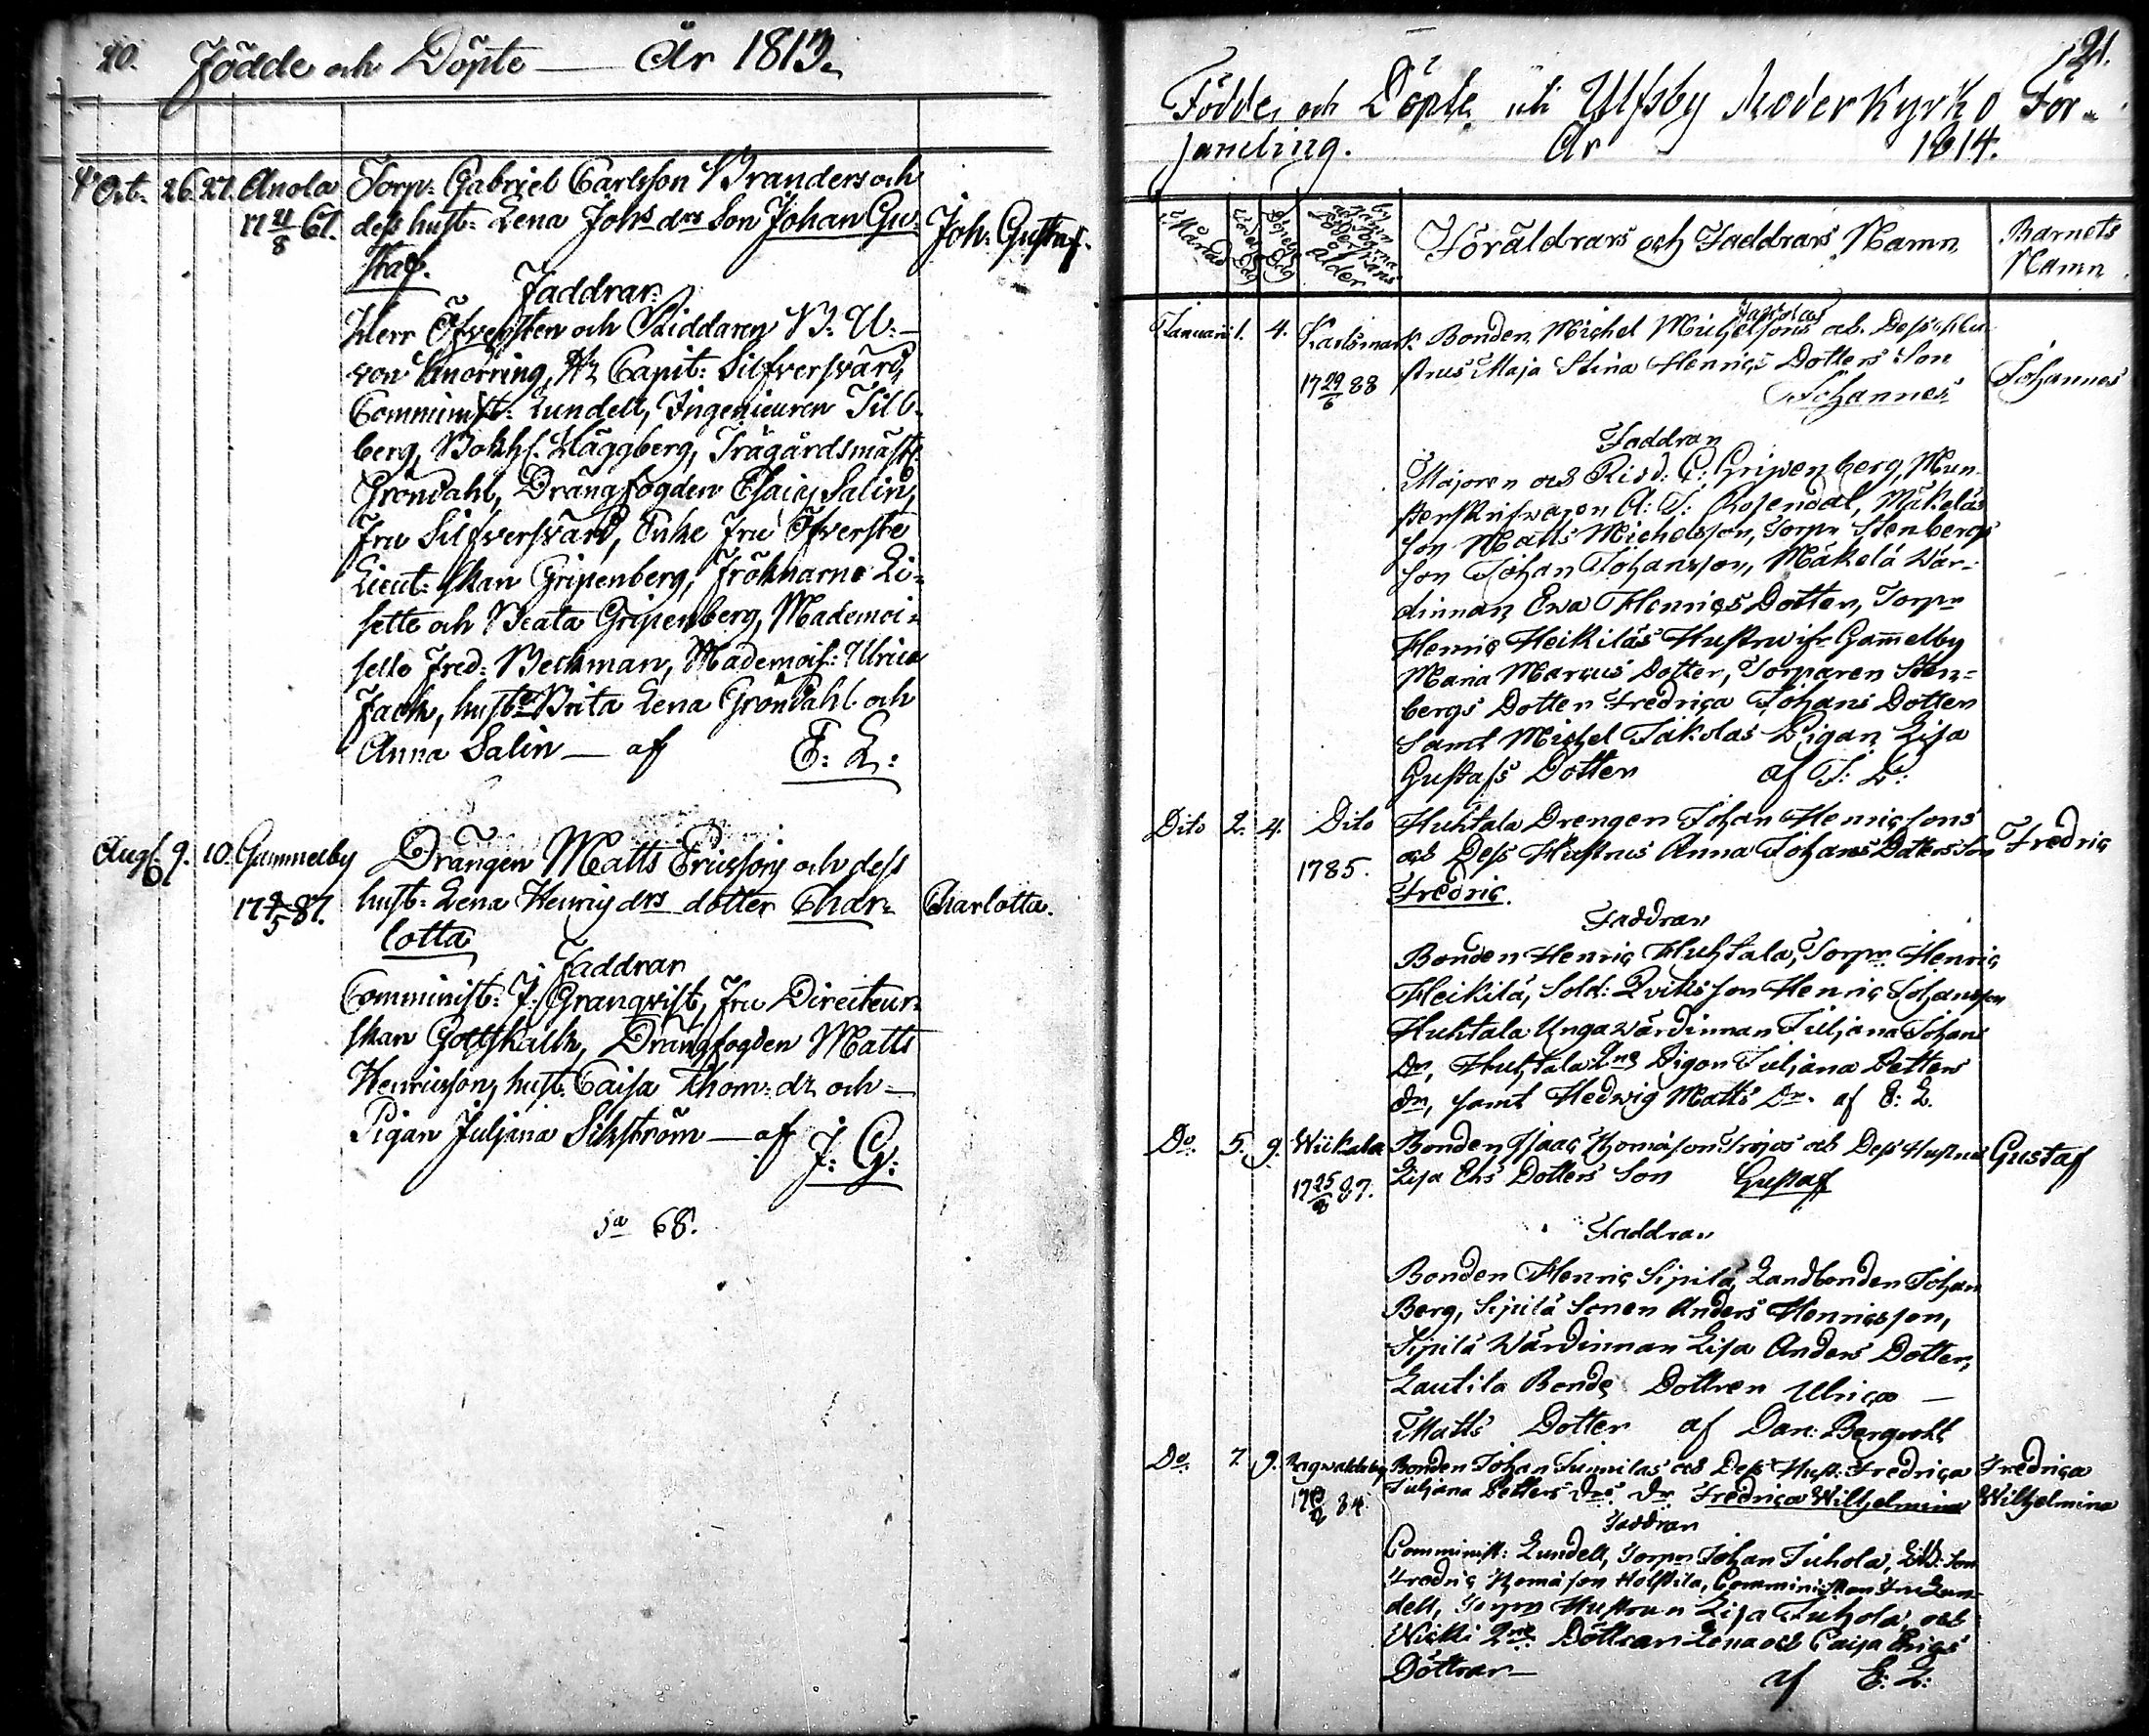 20. Födde och Döpte — År 1813.
4 Oct. 26. 27. Anola Torp: Gabriel Carlsson Branders och
17 11/8 67. dess hust: Lena Johs drs Son Johan Gu- Joh: Gustaf.
staf.
Faddrar:
Herr Öfversten och Riddaren B: U:
von Knorring, Hr Capit: Silfversvärd,
Comminist: Lundell, Ingenieuren Till-
berg, Bokh. Häggberg, Trägårdsmäst:
Gröndahl, Drängfogden Esaias Salin,
Fru Silfversvärd, Enke Fru Öfverste
Lieut:skan Gripenberg, Fröknarne Li-
sette och Beata Gripenberg, Mademoi-
selle Fred: Beckman, Mademois: Ulrica
Fack, hust: Brita Lena Gröndahl och
Anna Salin — af E: L:
Aug. 9. 10. Gammelby Drängen Matts Ericssons och dess
17 87. hust: Lena Henrics drs dotter Char- Charlotta.
lotta
Faddrar
Comminist: J: Granqvist, Fru Directeur-
skan Gottskalk, Drängfogden Matts
Henricsson, hust: Caisa Thom: dr och —
Pigan Juljana Sikström — af J: G:
Sa 68.
21.
Födde och Döpte uti Ulfsby Moderkyrko För-
samling. År 1814.
Månad
Föräldrars och Faddrars Namn
Barnets
Namn
Jakolas
Januari 1. 4. Karlsmark. Bonden Michel Michelsons och Dess Hu-
17 29/6 88 strus Maja Stina Henrics Dotters Son Johannes
Johannes
Faddrar
Majoren och Ridd: G: Gripenberg, Mun-
sterskrifwaren A: J: Rosendal, Mäkeläs
son Matts Michelsson, Torpr Stenbergs
son Johan Johansson, Mäkelä Wär-
dinnan Ewa Henrics Dotter, Torpr
Henric Heikiläs Hustru ifr Gamelby
Maria Marcus Dotter, Torparen Sten-
bergs Dotter Fredrica Johans Dotter
samt Michel Jakolas Pigan Lisa
Gustafs Dotter af E: L:
Dito 2. 4. Dito Huhtala Drengen Johan Henricsons
1785. och Dess Hustrus Anna Johans Dotters Son Fredric
Fredric.
Faddrar
Bonden Henric Huhtala, Torpr Henric
Heikilä, Sold: Qviks son Henric Johansson
Huhtala Unga wärdinnan Juljana Johans
Dr, Huhtala Pigan Juljana Petters
dr, samt Hedwig Matts Dr. af E: L.
Do 5. 9. Wickala Bonden Isaac Thomasson Trojas och Dess Hustrus Gustaf
17 25/2 87. Lisa Ers Dotters Son Gustaf
Faddrar
Bonden Henric Sipilä, Landbonden Johan
Berg, Sipilä Sonen Anders Henricsson,
Sipilä Wärdinnan Lisa Anders Dotter,
Lautila Bonde Dottren Ulrica —
Matts Dotter af Dan: Bergwall
Do 7 9. Ragwaldsby Bonden Johan Sunnilas och Dess Hust: Fredrica Fredrica
17 84. Juljana Petters drs dr Fredrica Wilhelmina Wilhelmina
Faddrar
Comminist: Lundell, Torpr Johan Juhola, Son
Fredric Thomasson Holstila, Comministerskan Fru Lun-
dell, Torpr Hustrun Lisa Juhola, och
Wicki Döttrar Lena och Caisa Erics
Döttrar — af E: L: